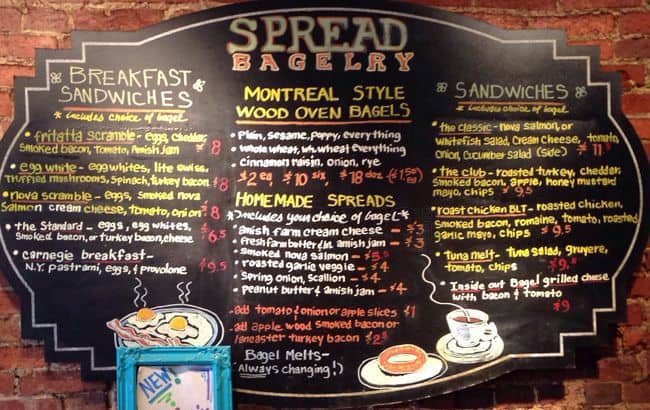 SPREAD
BAGELRY
BREAKFAST
SANDWICHES
* includes choice of bagel
frittatta scramble - eggs, cheddar,
Smoked bacon, Tomato, Amish jam $8
egg white - egg whites, lite swiss,
Truffled mushrooms, Spinach, turkey bacon $8
nova scramble - eggs, Smoked nova
Salmon cream cheese, Tomato, onion $8
the Standard - eggs, egg whites,
Smoked bacon, or turkey bacon, cheese $6.5
carnegie breakfast -
N.Y. pastrami, eggs, & provolone $9.5
MONTREAL STYLE
WOOD OVEN BAGELS
• Plain, sesame, poppy, everything
• whole wheat, wh. wheat everything
• cinnamon raisin, onion, rye
$2 ea, $10 six, $18 doz ($1.50 ea)
HOMEMADE SPREADS
*Includes your choice of bagel*
• amish farm cream cheese - $3
• fresh farm butter & amish jam - $3
• smoked nova salmon -
• roasted garlic veggie - $4
• Spring onion, Scallion - $4
• peanut butter & amish jam - $4
- add tomato & onion or apple slices $1
- add apple wood smoked bacon or
lancaster turkey bacon $2
Bagel Melts -
(Always changing!)
SANDWICHES
* includes choice of bagel
the classic - nova salmon, or
whitefish salad, cream cheese, tomato,
Onion, cucumber salad (side) $11
the club - roasted turkey, cheddar,
smoked bacon, apple, honey mustard
mayo, chips $9.5
roast chicken BLT - roasted chicken,
Smoked bacon, romaine, tomato, roasted
garlic mayo, chips $9.5
Tuna melt - Tuna salad, gruyere,
tomato, chips
Inside out Bagel grilled cheese
with bacon & tomato
$9
NEW